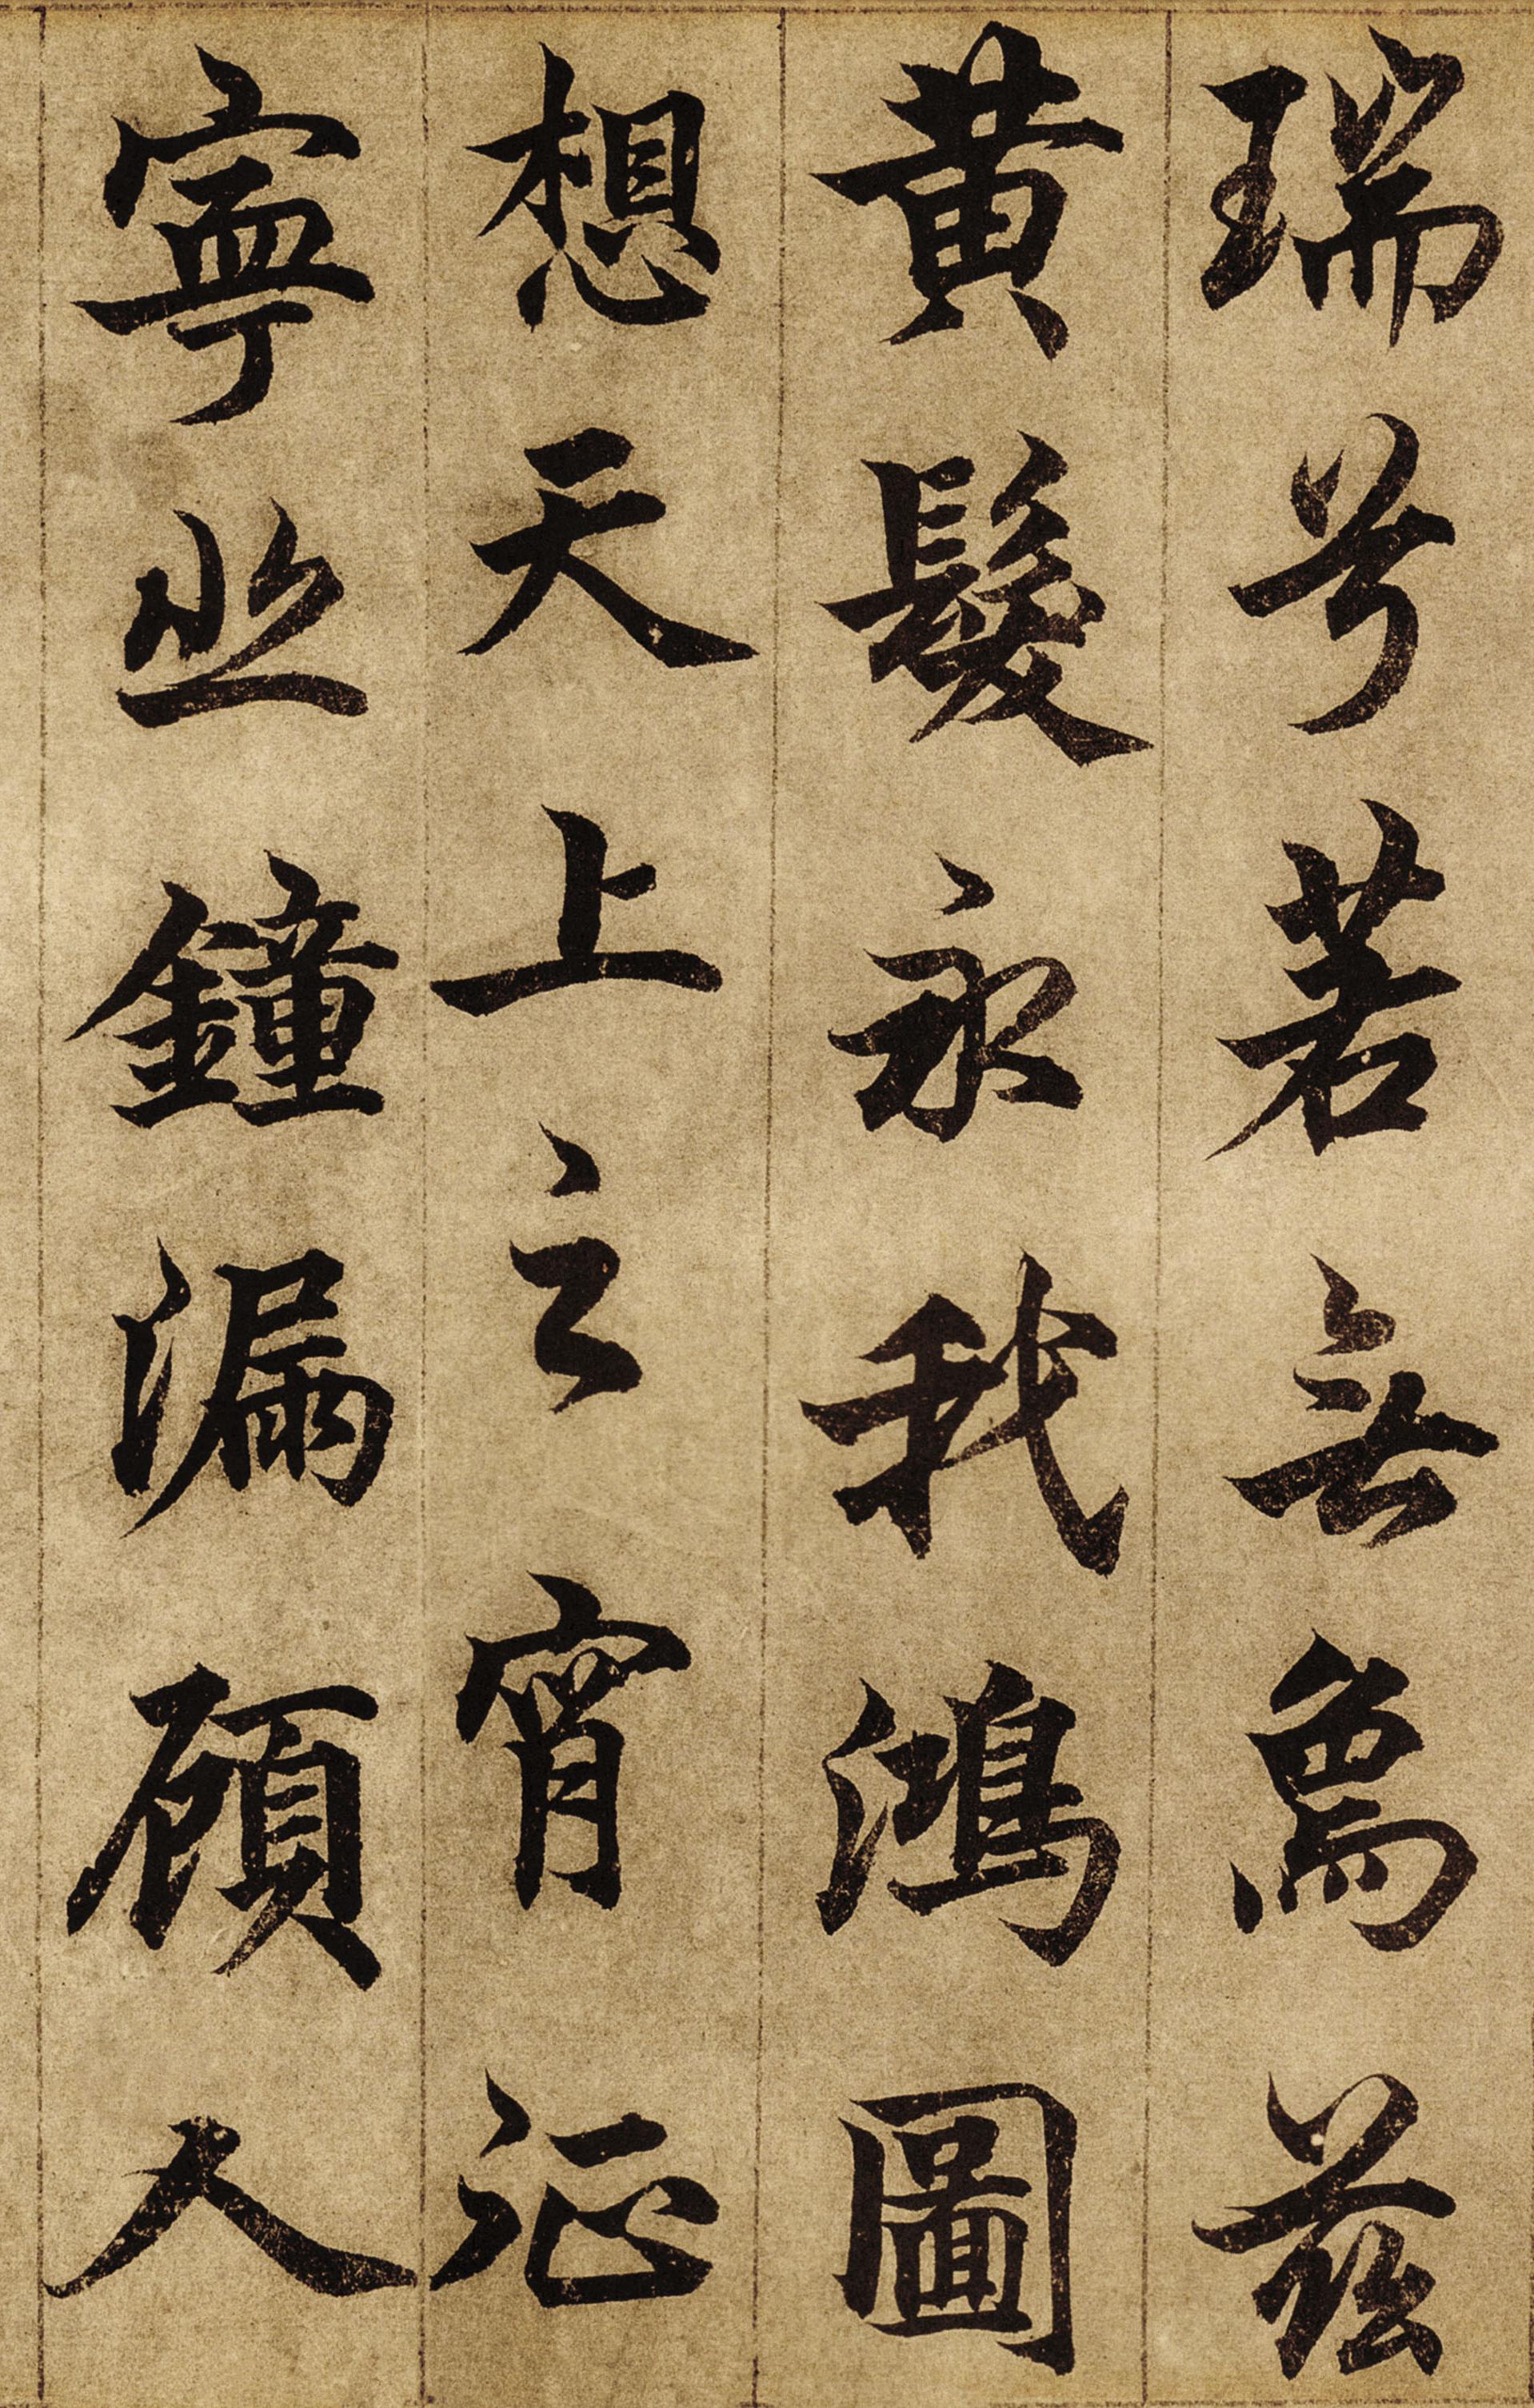 瑞兮若無為茲
黃髮永我鴻圖
想天上之宵征
寧些鐘漏顧人